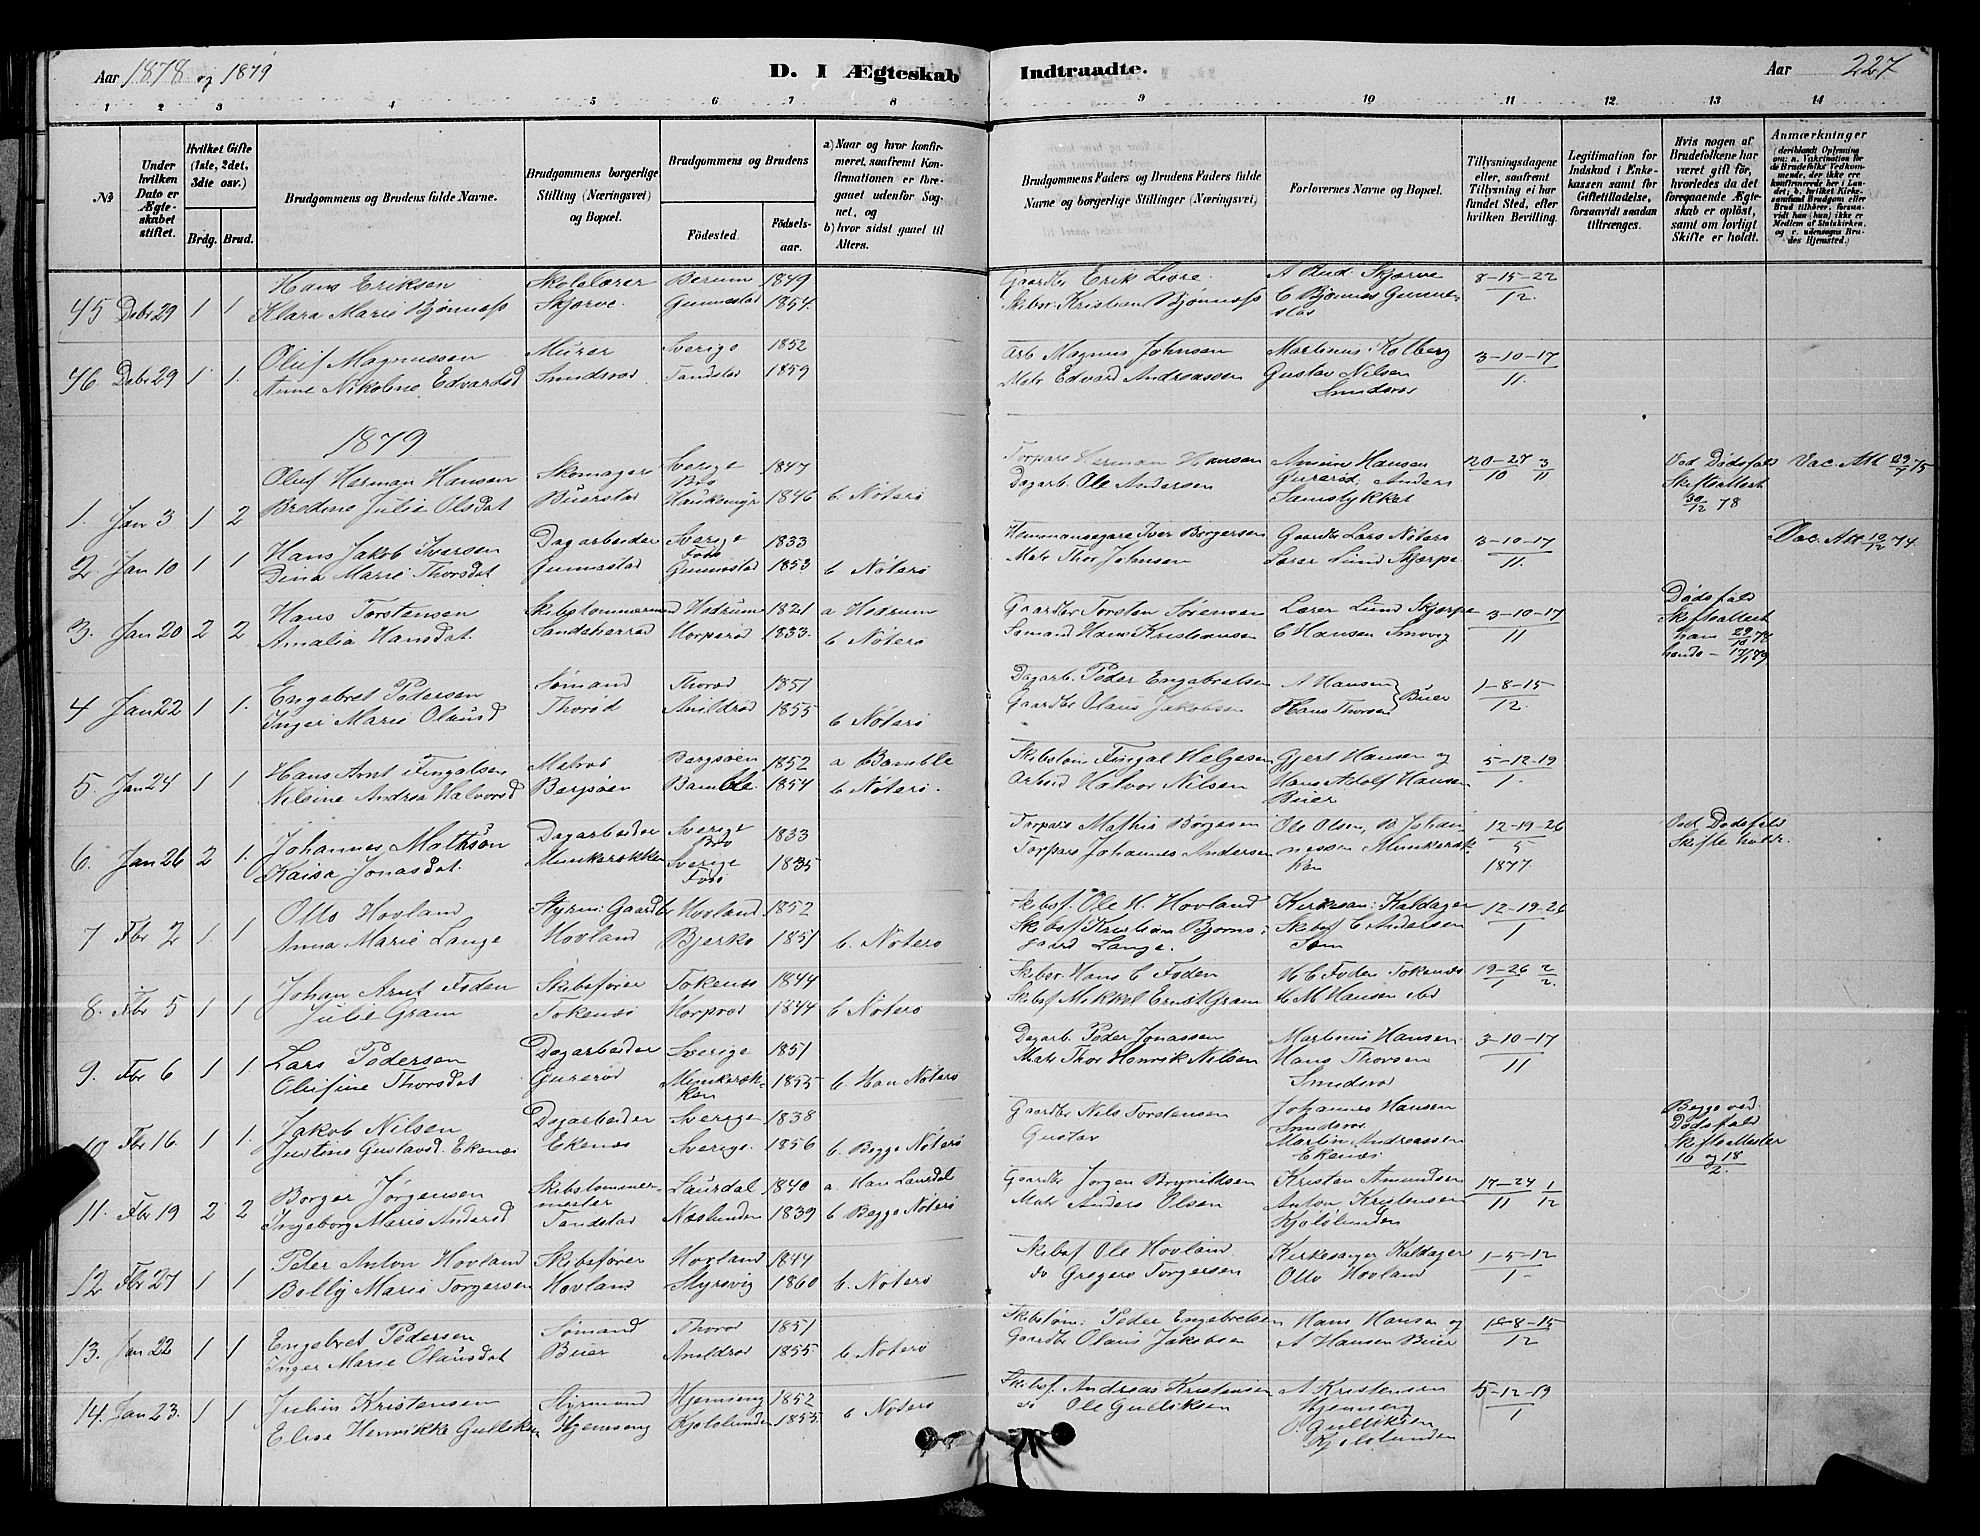 Aar 1878 og 1879
D. I Ægteskab Indtraadte.
Aar 227
1 2 3 4 5 6 7 8 9 10 11 12 13 14
No
Under hvilken Dato er Ægteskabet stiftet.
Hvilket Gifte (1ste, 2det, 3die osv.)
Brdg. Brud.
Brudgommens og Brudens fulde Navne.
Brudgommens borgerlige Stilling (Næringsvei) og Bopæl.
Brudgommens og Brudens
Födested. Födselsaar.
a) Naar og hvor konfirmeret, saafremt Konfirmationen er foregaaet udenfor Sognet, og
b) hvor sidst gaaet til Alters.
Brudgommens Faders og Brudens Faders fulde Navne og borgerlige Stillinger (Næringsvei)
Forlovernes Navne og Bopæl.
Tillysningsdagene eller, saafremt Tillysning ei har fundet Sted, efter hvilken Bevilling.
Legitimation for Indskud i Enkekassen samt for Giftetilladelse, forsaavidt saadan tiltrænges.
Hvis nogen af Brudefolkene har været gift før, hvorledes da det foregaaende Ægteskab er opløst, samt om lovligt Skifte er holdt.
Anmærkninger
45 Debr 29 1 1 Hans Eriksen Skolelærer Berum 1849 Gaardbr Erik Levre. 8-15-22
Klara Marie Bjønness Skjerve. Gunnestad 1854. Skibsr. Kristian Bjønness C Bjønnes Gunnestad 12.
46. Debr 29 1 1. Oluf Magnussen Murer Sverige 1852 Arb Magnus Johnsen Martinus Kolberg 3-10-17
Anne Nikoline Edvardsd Smidsrød Tandstad 1859 Matr Edvard Andreassen Gustav Nilsen Smidsrød 11.
1879
1. Jan 3 1 2 Oluf Herman Hansen Skomager Sverige 1847 Torpare Herman Hansen 20-27/10 3/11 Ved Dødsfald Vac. Att 29/7 75
Bredine Julie Olsdat Buerstad Hauksmyr 1846 b. Nøterø Dagarb. Ole Andersen Skifteattest 30/12 78
2. Jan 10 1 1 Hans Jakob Iversen Dagarbeider Sverige 1833 Hemmansegare Iver Børgersen Gaardbr Lars Nøterø 3-10-17 Vac. Att 10/12 74.
Dina Marie Thorsdat Gunnestad Gunnestad 1853 b Nøterø Matr Thor Johnsen Lærer Lund Skjerpe 11.
3. Jan 20 2 2 Hans Torstensen Skibstømmermand Hedrum 1821 a Hedrum Gaardbr Torsten Sørensen Lærer Lund Skjerpe 3-10-17 Dødsfald
Amalia Hansdat. Sandeherred Horperød 1833. b Nøterø Sømand Hans Kristiansen C Hansen Smevig 11 Skifteattest
4 Jan 22 1 1. Engebret Pedersen Sømand Thorød 1851 Dagarb. Peder Engebretsen A Hansen 1-8-15
Inger Marie Olausd Thorød Arildrød 1855 b Nøterø Gaardbr Olaus Jakobsen Hans Thorsen Buer 12.
5. Jan 24 1 1 Hans Arnt Fingalsen Matros Bergsøen 1852 a Bamble Skibstøm Fingal Helgesen Gjert Hansen og 5-12-19
Nilsine Andrea Halvorsd Bergsøen Bamble. 1854 b Nøterø. Arbeid Halvor Nilsen Hans Adolf Hansen Buer 1.
6. Jan 26 2 1. Johannes Mathson Dagarbeider Sverige 1833 Torpare Mathis Børgesen Ole Olsen, B Johan- 12-19-26 Ved Dødsfald
Kaisa Jonasdat. Munkerekken Sverige 1835 Torpare Johannes Andersen nessen Munkerekken 5 1877. Skifte holdt.
7 Fbr 2 1. 1 Otto Hovland Styrm: Gaardb Hovland 1852 Skibsf. Ole H. Hovland Kirkesan: Kaldager 12-19-26
Anna Marie Lange Hovland Bjerkø 1851 b. Nøterø Skibsf Kristian Bjørnsgaard Lange. Skibsf C Andersen 1
8. Fbr 5 1 1 Johan Arnt Foden Skibsfører Tokenes 1844 Skibsr. Hans C Foden H C Foden Tokenes 19-26/1 2/2.
Julie Gram Tokenes Horperød 1844 b Nøterø Skibsf Mikkel Ernst Gram H M Hansen ibd
9. Fbr 6 1 1 Lars Pedersen Dagarbeider Sverige 1851 Dagarb. Peder Jonassen Martinus Hansen 3-10-17
Olufine Thorsdat Gurerød Munkerekken 1855 b. Han Nøterø Matr Thor Henrik Nilsen Hans Thorsen Smidsrød 11
10 Fbr 16. 1 1. Jakob Nilsen Dagarbeider Sverige 1838 Gaardbr Nils Torstensen Johannes Hansen Smidsrød Begge ved Dødsfald
Justine Gustavsd. Ekenes Ekenes Sverige. 1856 b. Begge Nøterø Gustav Martin Andreassen Ekenes Skifteattester 16 og 18/2.
11. Fbr 19 2 2 Borger Jørgensen Skibstømmermester Laurdal 1840 a. Han Laurdal Gaardbr Jørgen Brynildsen Kristen Amundsen 17-24/11 1/12
Ingeborg Marie Andersd Tandstad Næslunden 1839 b Begge Nøterø Matr Anders Olsen Anton Kristensen Kjølelunden
12 Fbr 27 1 1 Peter Anton Hovland Skibsfører Hovland 1844 Skibsf Ole Hovland Kirkesanger Kaldager 1-5-12
Bolly Marie Torgersen Hovland Styrsvig 1860 b. Nøterø do Gregers Torgersen Otto Hovland 1.
13. Jan 22 1 1 Engebret Pedersen Sømand Thorød 1851 Skibstøm: Peder Engebretsen Hans Hansen og 1-8-15
Inger Marie Olausdat Buer Arildrød 1855. b Nøterø Gaardbr Olaus Jakobsen A Hansen Buer 12
14. Jan 23. 1 1 Julius Kristensen Styrmand Hjemseng 1852 Skibsf. Andreas Kristensen A Kristensen Hjemseng 5-12-19
Elise Henrikke Gulliksen Hjemseng Kjølelunden 1855. b Nøterø do Ole Gulliksen O. Gulliksen Kjølelunden 1